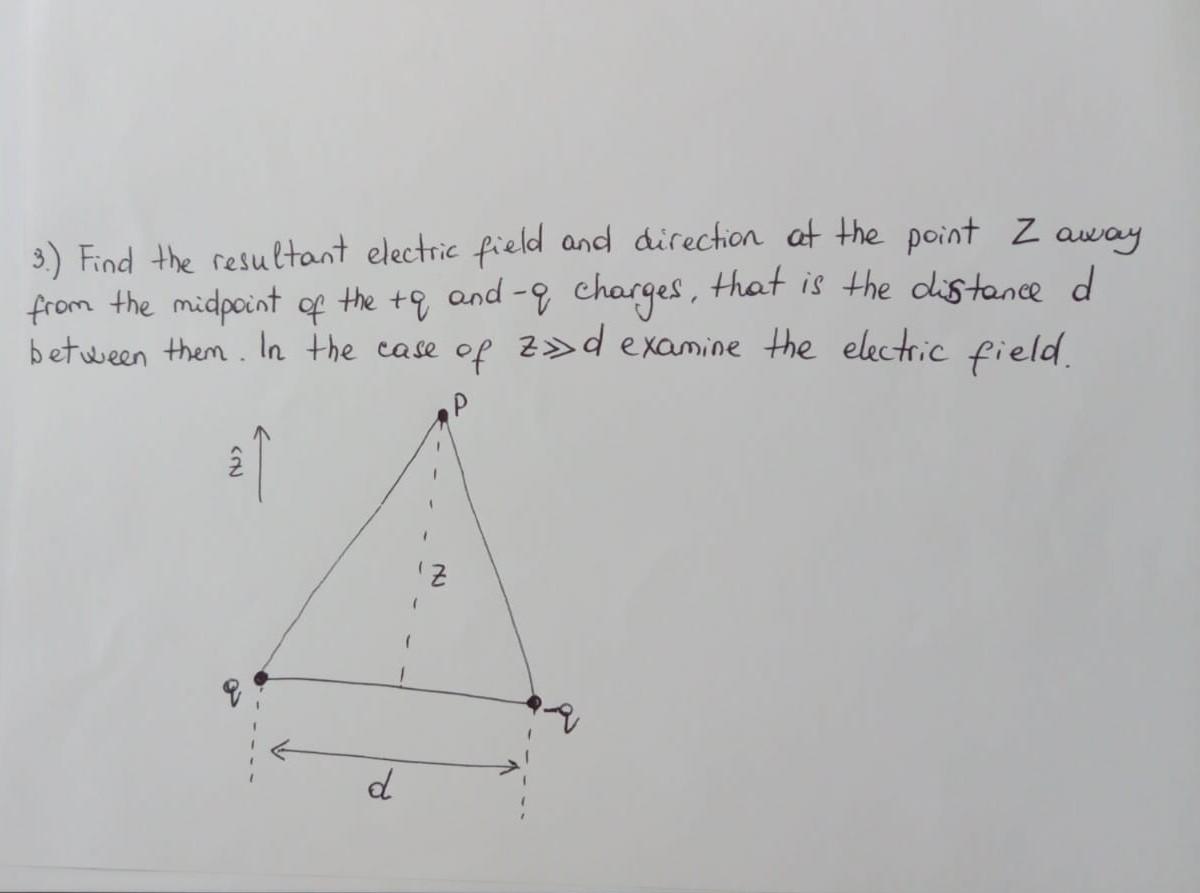 3.) Find the resultant electric field and direction at the point Z away
from the midpoint of the +q and -q charges, that is the distance d
between them. In the case of z>>d examine the electric field.
P
ẑ
z
q
-q
d